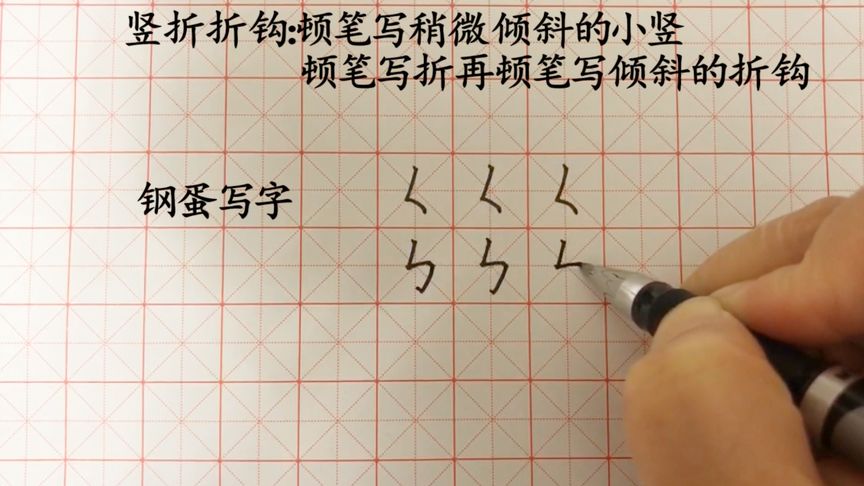 竖折折钩:顿笔写稍微倾斜的小竖
顿笔写折再顿笔写倾斜的折钩
钢蛋写字
く く く
ㄣ ㄣ